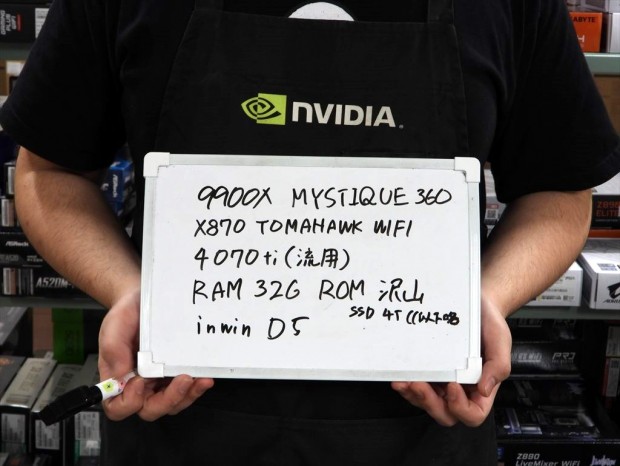 NVIDIA
9900X MYSTIQUE 360
X870 TOMAHAWK WIFI
4070ti (流用)
RAM 32G ROM 沢山
SSD 4T
inwin D5
A520M
Z890
PRO
Z890
LiveMixer WiFi